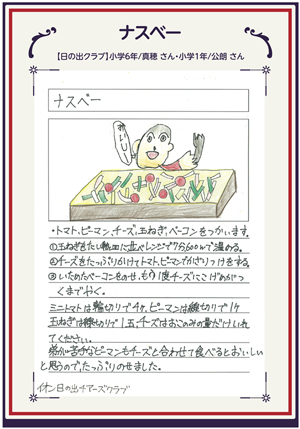 ナスベー
【日の出クラブ】小学6年/真穂 さん・小学1年/公朗 さん
ナスベー
おいしい
・トマト、ピーマン、チーズ、玉ねぎ、ベーコンをつかいます。
①玉ねぎをたい熱皿に並べレンジで7分600wで温める。
②チーズをたっぷりかけてトマト、ピーマンでかざりつけをする。
③いためたベーコンをのせ、もう1度チーズにこげめがつ
くまでやく。
ミニトマトは輪切りで4ヶ、ピーマンは線切りで1ケ
玉ねぎは線切りで1玉、チーズはおこのみの量だけいれ
てください。
苦手なピーマンもチーズと合わせて食べるとおいしい
と思うので、たっぷりのせました。
イオン日の出チアーズクラブ